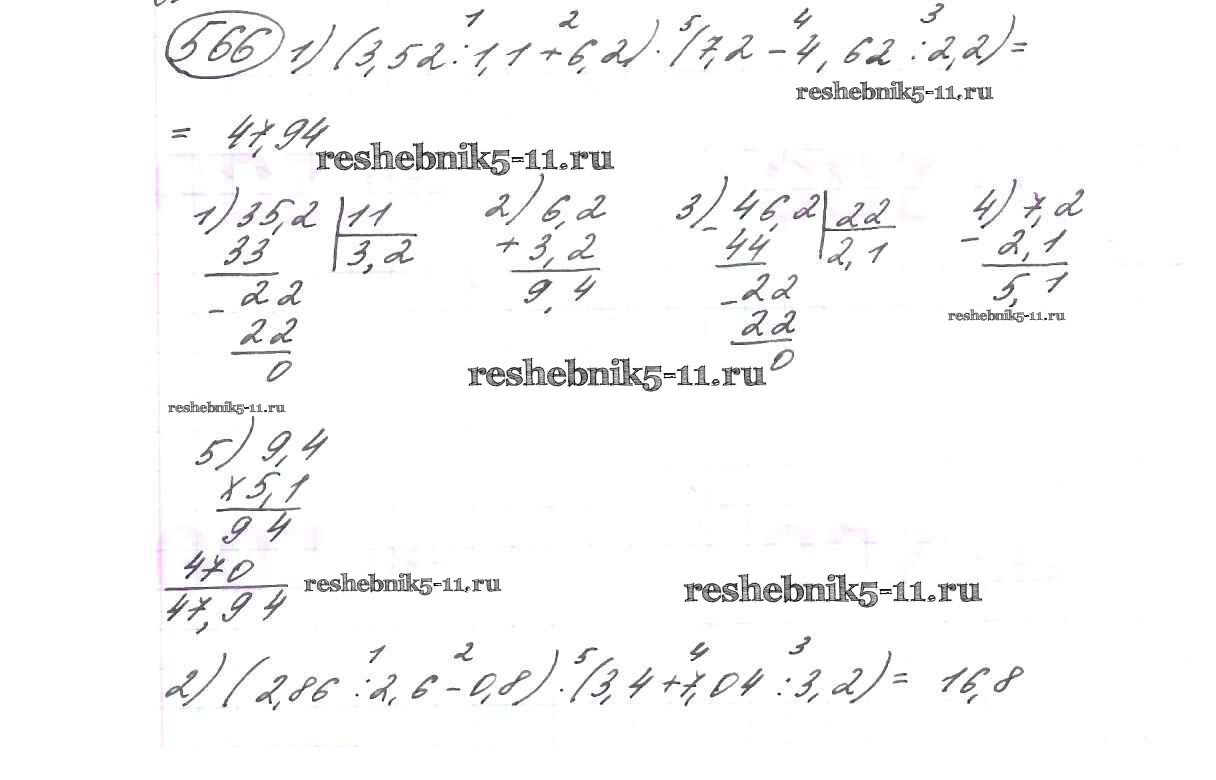 566 1) (3,52 : 1,1 + 6,2) · (7,2 - 4,62 : 2,2) =
1 2 5 4 3
reshebnik5-11.ru
= 47,94
reshebnik5-11.ru
1) 35,2 | 11
33 3,2
- 22
22
0
2) 6,2
+ 3,2
9,4
3) - 46,2 | 22
44 2,1
- 22
22
0
4) 7,2
- 2,1
5,1
reshebnik5-11.ru
reshebnik5-11.ru
reshebnik5-11.ru
5) 9,4
x 5,1
94
470
47,94
reshebnik5-11.ru
reshebnik5-11.ru
1 2 5 4 3
2) (2,86 : 2,6 - 0,8) · (3,4 + 7,04 : 3,2) = 16,8